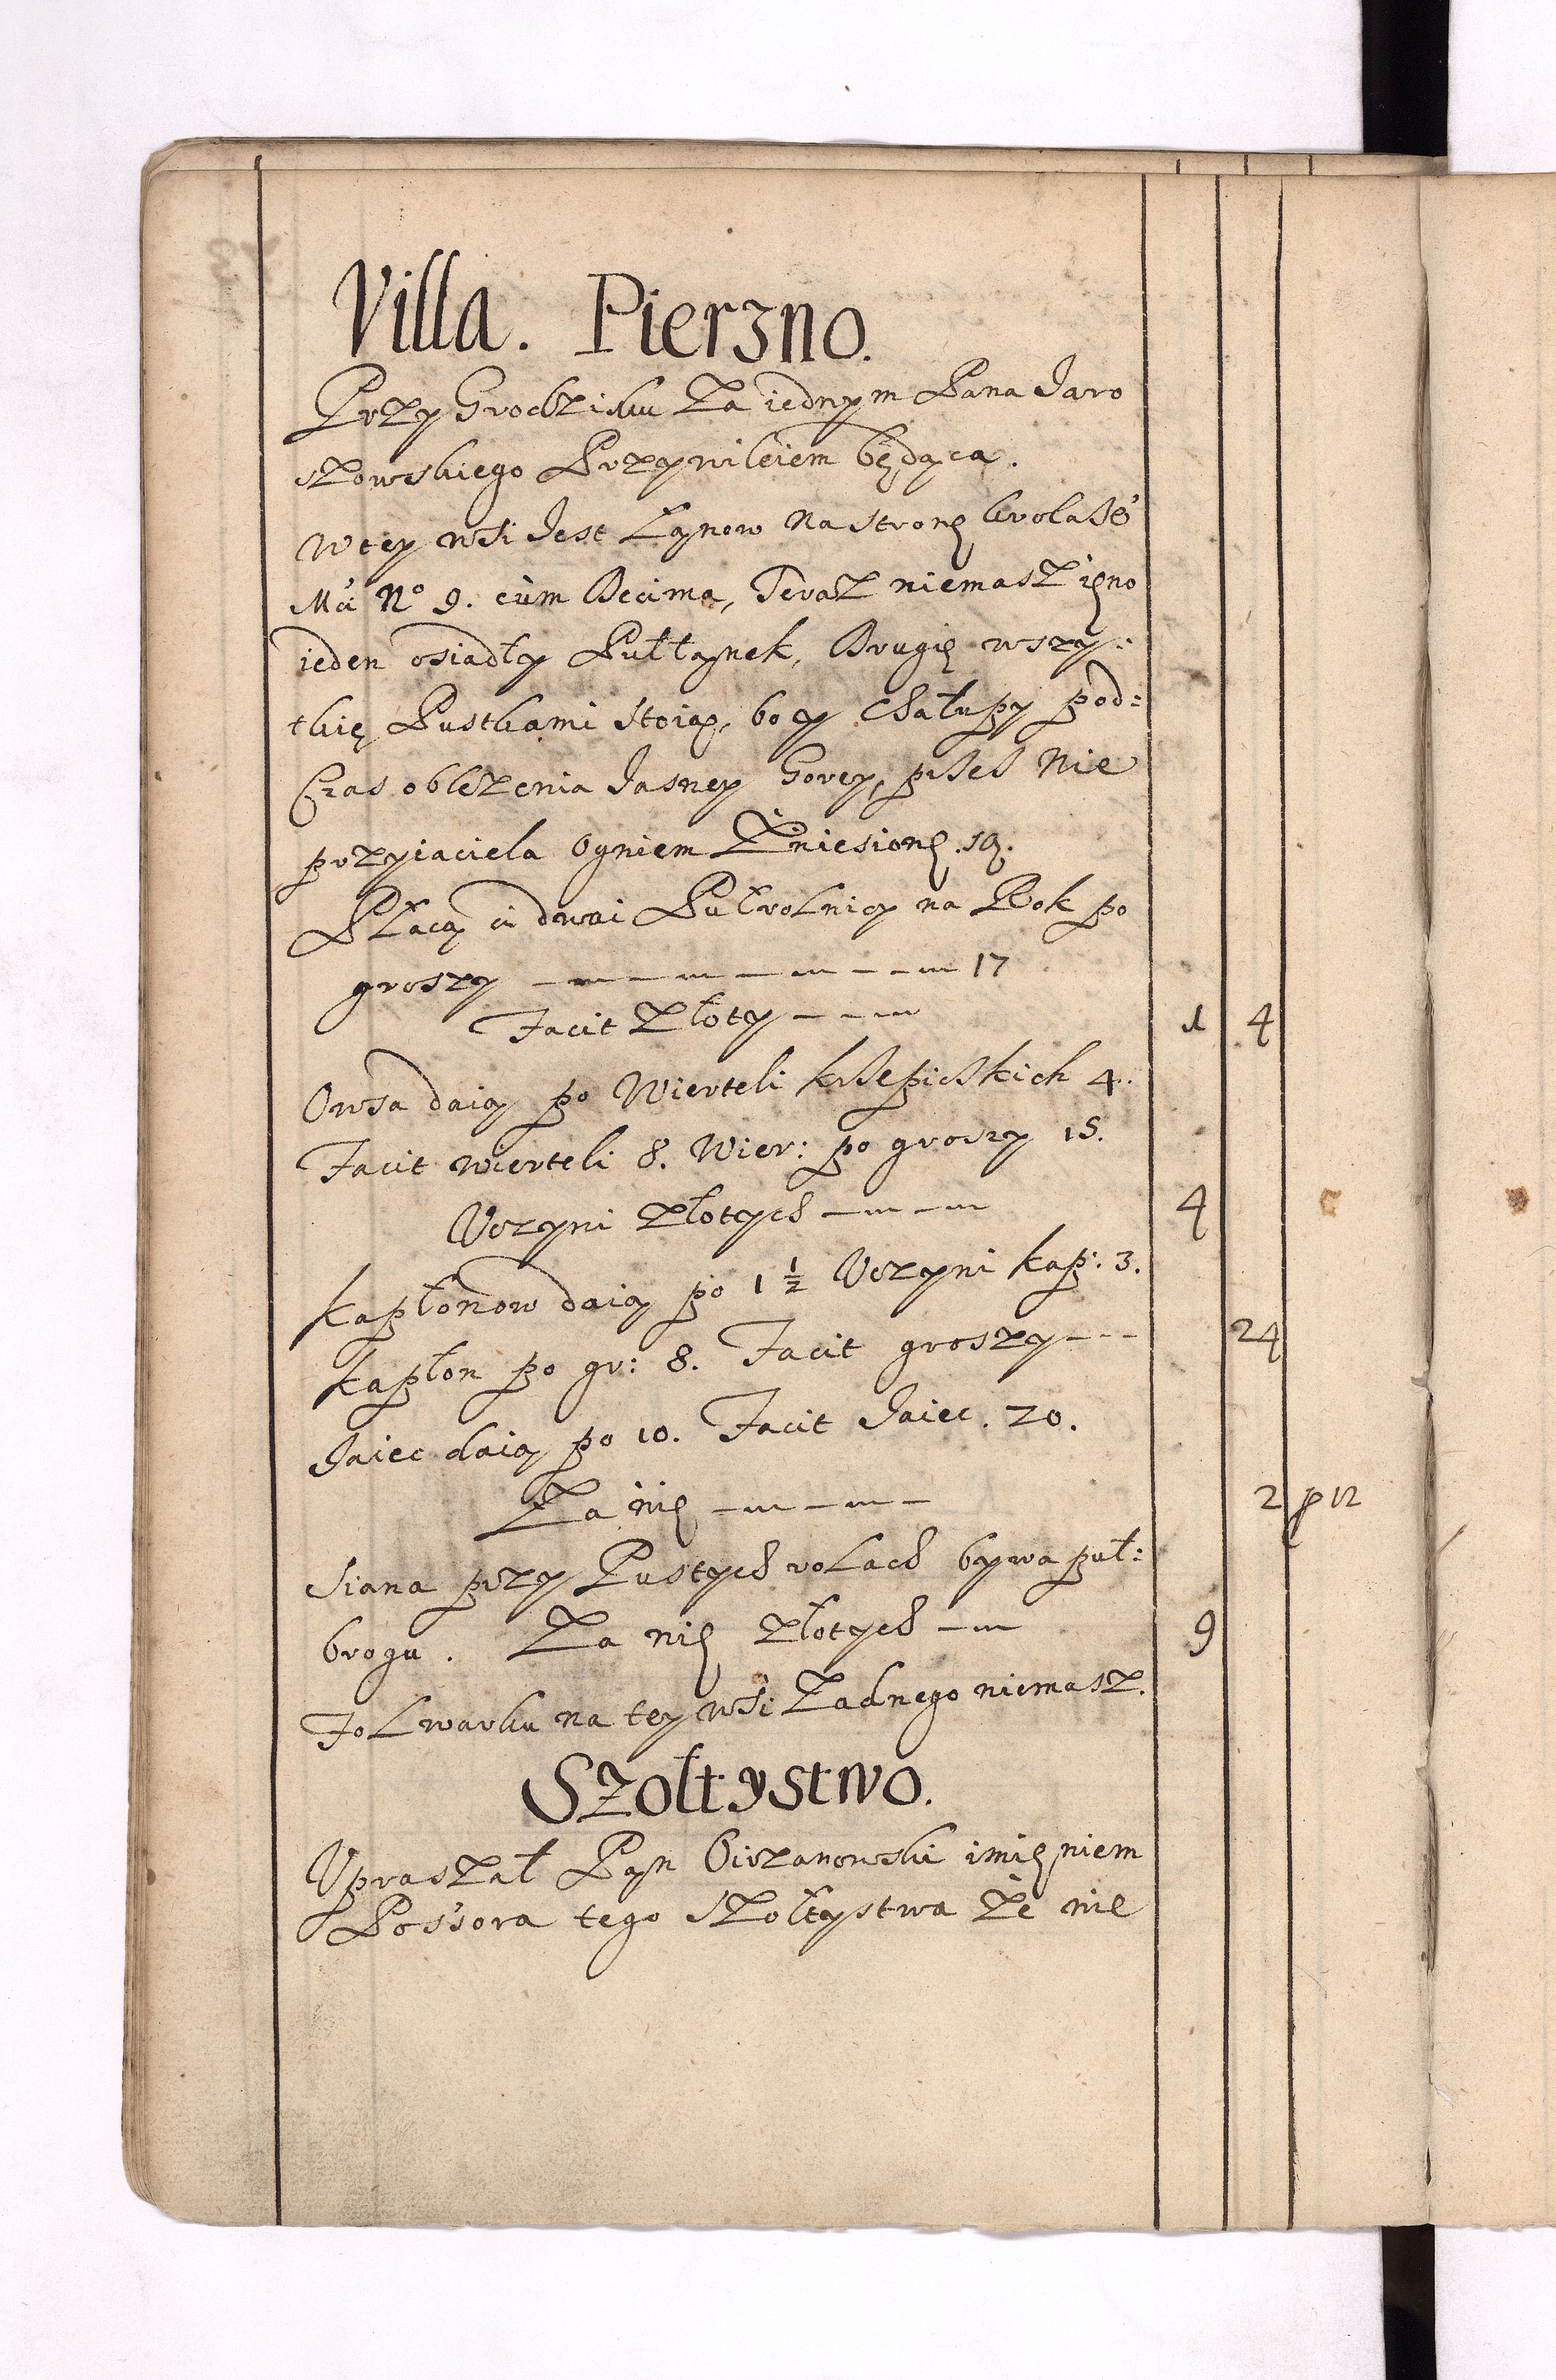 Villa. Pierzno.
Przy Grodzisku Za iednym Pana Jaro
szowskiego Przywileiem będąca.
W tey wsi Jest Łanow Na stronę krola Je͛
Mci No 9. cum Decima, Teraz niemasz ięno
ieden osiadły Pułłanek, Drugię wszy:
tkię Pustkami stoią, bo y Chałupy pod:
Czas oblezenia Jasney Gorey, przes Nie
przyiaciela Ogniem Zniesionę są.
Płacą ci dwai Pułrolnicy na Rok po
groszy 17
Facit Złoty 1 4
Owsa daią po Wierteli krzepickich 4.
Facit wierteli 8. Wier: po groszy 15.
Uczyni Złotych 4
Kapłonow daią po 1 1/2 Uczyni kap: 3.
Kapłon po gr: 8. Facit groszy 24
Jaiec daią po 10. Facit Jaiec. 20.
Za nię 2 p 12
Siana przy Pustych rolach bywa puł:
brogu. Za nię Złotych 9
Folwarku na tey wsi Zadnego niemasz.
Szołtystwo.
Upraszał Pan imięniem
Possora tego Szołtystwa Że nie